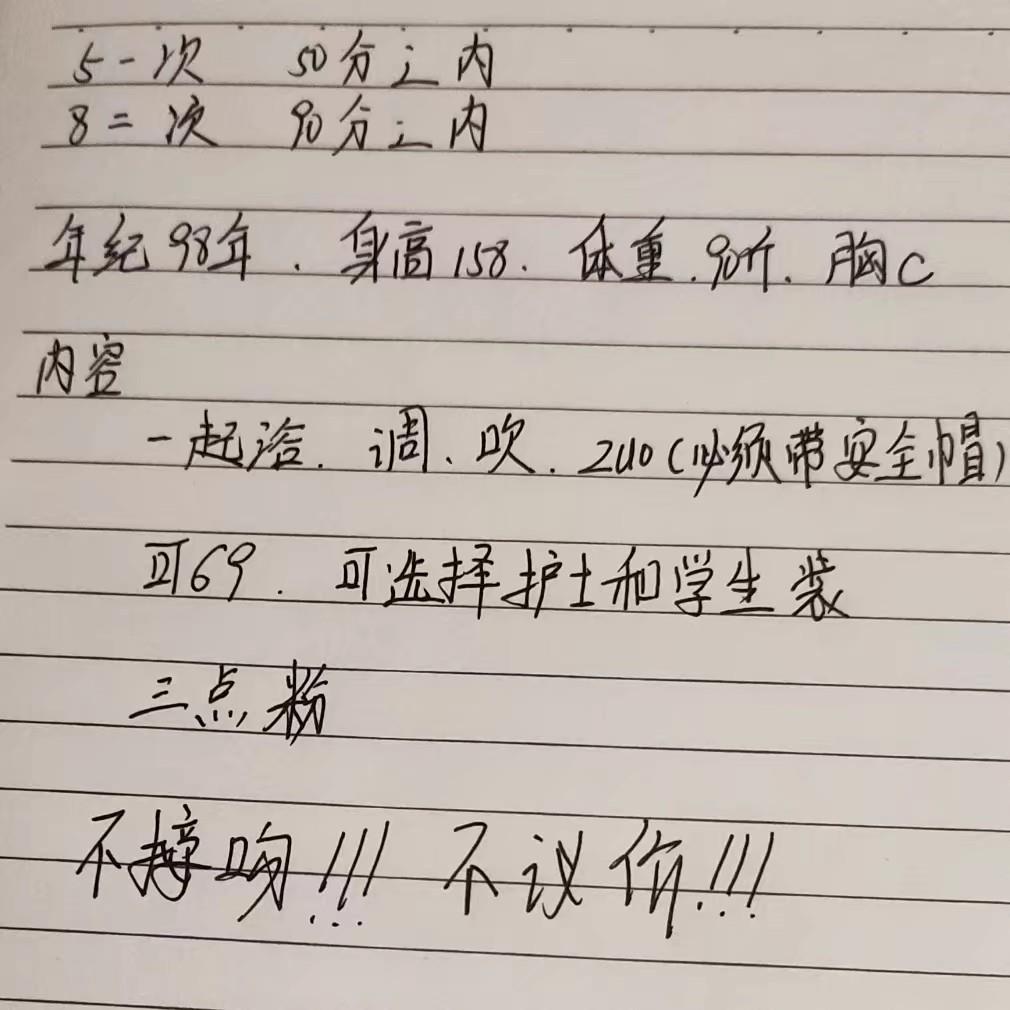 5一次 50分之内
8二次 90分之内
年纪98年. 身高158. 体重.90斤. 胸C
内容
一起洽. 调、吹. zuo(必须带安全帽)
可69. 可选择护士和学生装
三点粉
不接吻!!! 不议价!!!